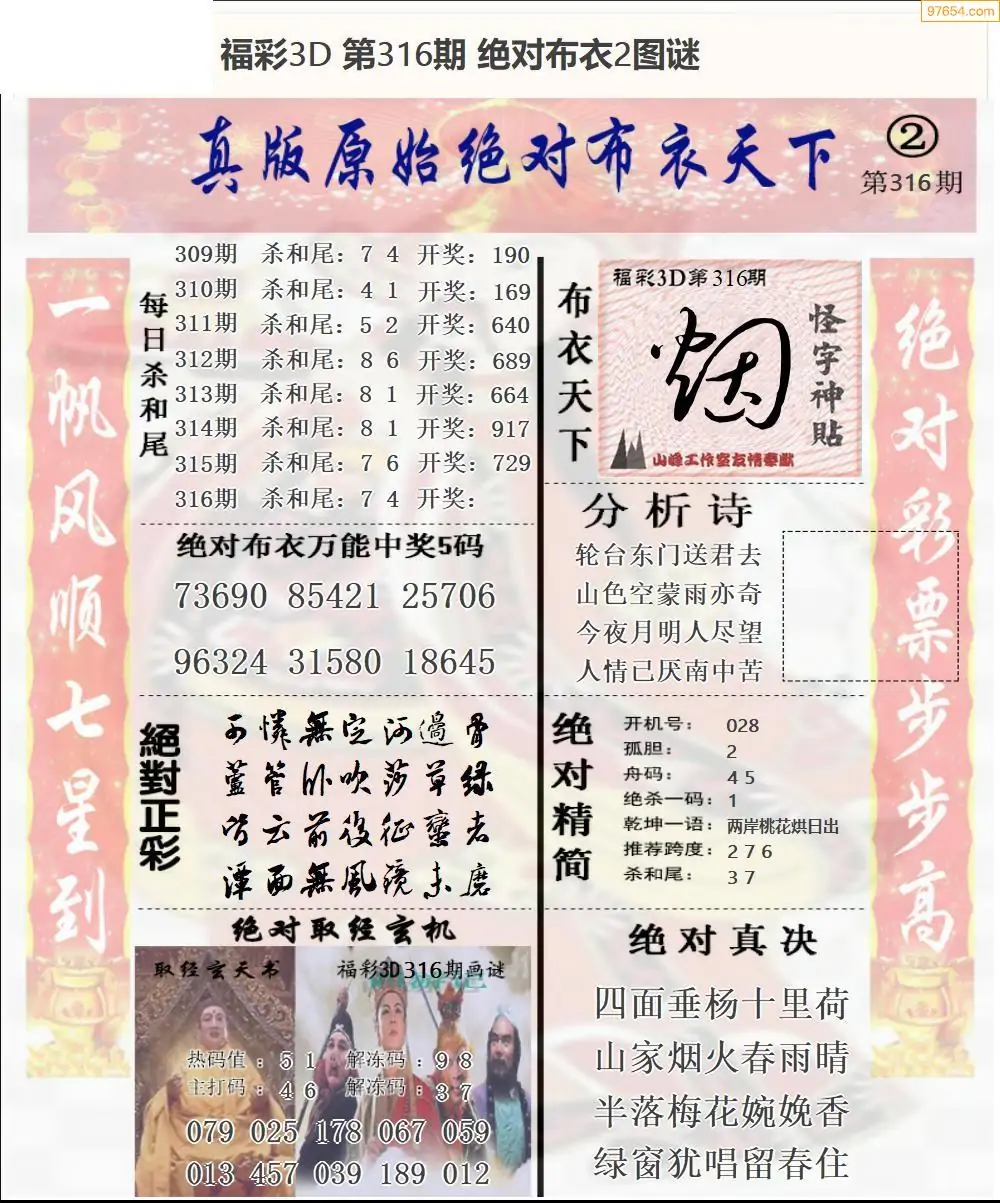 97654.com
福彩3D 第316期 绝对布衣2图谜
真版原始绝对布衣天下
②
第316期
一帆风顺七星到
每日杀和尾
309期 杀和尾：7 4 开奖：190
310期 杀和尾：4 1 开奖：169
311期 杀和尾：5 2 开奖：640
312期 杀和尾：8 6 开奖：689
313期 杀和尾：8 1 开奖：664
314期 杀和尾：8 1 开奖：917
315期 杀和尾：7 6 开奖：729
316期 杀和尾：7 4 开奖：
绝对布衣万能中奖5码
73690 85421 25706
96324 31580 18645
絕對正彩
可憐無定河邊骨
蘆管卧吹莎草绿
皆云前後征蠻者
潭面無風鏡未磨
绝对取经玄机
取经玄天书
福彩3D316期画谜
热码值：5 1 解冻码：9 8
主打码：4 6 解冻码：3 7
079 025 178 067 059
013 457 039 189 012
布衣天下
福彩3D第316期
烟
怪字神贴
山峰工作室友情奉献
分析诗
轮台东门送君去
山色空蒙雨亦奇
今夜月明人尽望
人情已厌南中苦
绝对精简
开机号： 028
孤胆： 2
舟码： 4 5
绝杀一码：1
乾坤一语：两岸桃花烘日出
推荐跨度：2 7 6
杀和尾： 3 7
绝对真决
四面垂杨十里荷
山家烟火春雨晴
半落梅花婉娩香
绿窗犹唱留春住
绝对彩票步步高